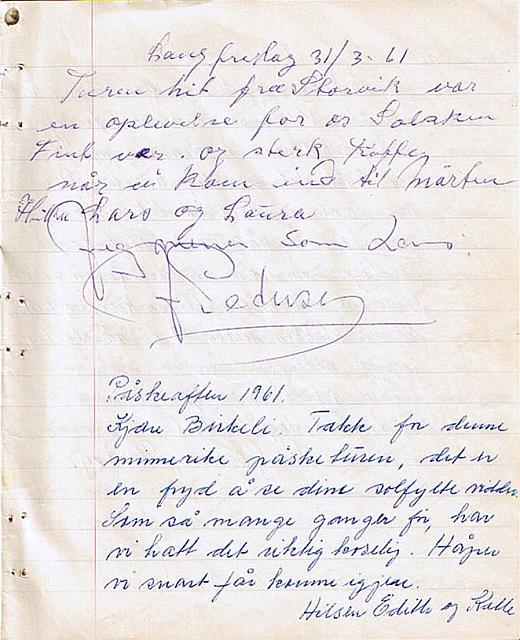 Langfredag 31/3-61
Turen hit fra Storvik var
en oplevelse for os Solskin
Fint vær. og sterk Kaffe
når vi kom ind til Mårten
Hilsen Lars og Laura
Jeg mener som Lars.
Påskeaften 1961.
Kjære Birkeli. Takk for denne
minnerike påsketuren, det er
en fryd å se dine solfylte vidder
Som så mange ganger før, har
vi hatt det riktig koselig. Håper
vi snart får komme igjen.
Hilsen Edith og Kalle